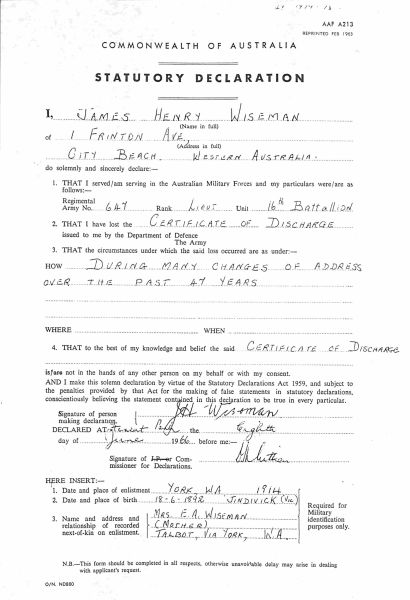 AAF A213
REPRINTED FEB 1963
COMMONWEALTH OF AUSTRALIA
STATUTORY DECLARATION
I, JAMES HENRY WISEMAN
(Name in full)
of 1 FRINTON AVE,
(Address in full)
CITY BEACH. WESTERN AUSTRALIA.
do solemnly and sincerely declare:—
1. THAT I served/am serving in the Australian Military Forces and my particulars were/are as
follows:—
Regimental
Army No. 647 Rank LIEUT Unit 16th BATTALLION
2. THAT I have lost the CERTIFICATE OF DISCHARGE
issued to me by the Department of Defence
The Army
3. THAT the circumstances under which the said loss occurred are as under:—
HOW DURING MANY CHANGES OF ADDRESS
OVER THE PAST 47 YEARS
WHERE WHEN
4. THAT to the best of my knowledge and belief the said CERTIFICATE OF DISCHARGE
is/are not in the hands of any other person on my behalf or with my consent.
AND I make this solemn declaration by virtue of the Statutory Declarations Act 1959, and subject to
the penalties provided by that Act for the making of false statements in statutory declarations,
conscientiously believing the statement contained in this declaration to be true in every particular.
Signature of person
making declaration. JH Wiseman
DECLARED AT the Eighth
day of June 1966 before me:—
Signature of J.P. or Com-
missioner for Declarations.
HERE INSERT:—
1. Date and place of enlistment YORK, WA 1914
2. Date and place of birth 18-6-1892 JINDIVICK (Vic)
3. Name and address and
relationship of recorded
next-of-kin on enlistment.
MRS. E.A. WISEMAN
(MOTHER)
TALBOT, VIA YORK, W.A.
Required for
Military
identification
purposes only.
N.B.—This form should be completed in all respects, otherwise unavoidable delay may arise in dealing
with applicant's request.
O/N. ND880